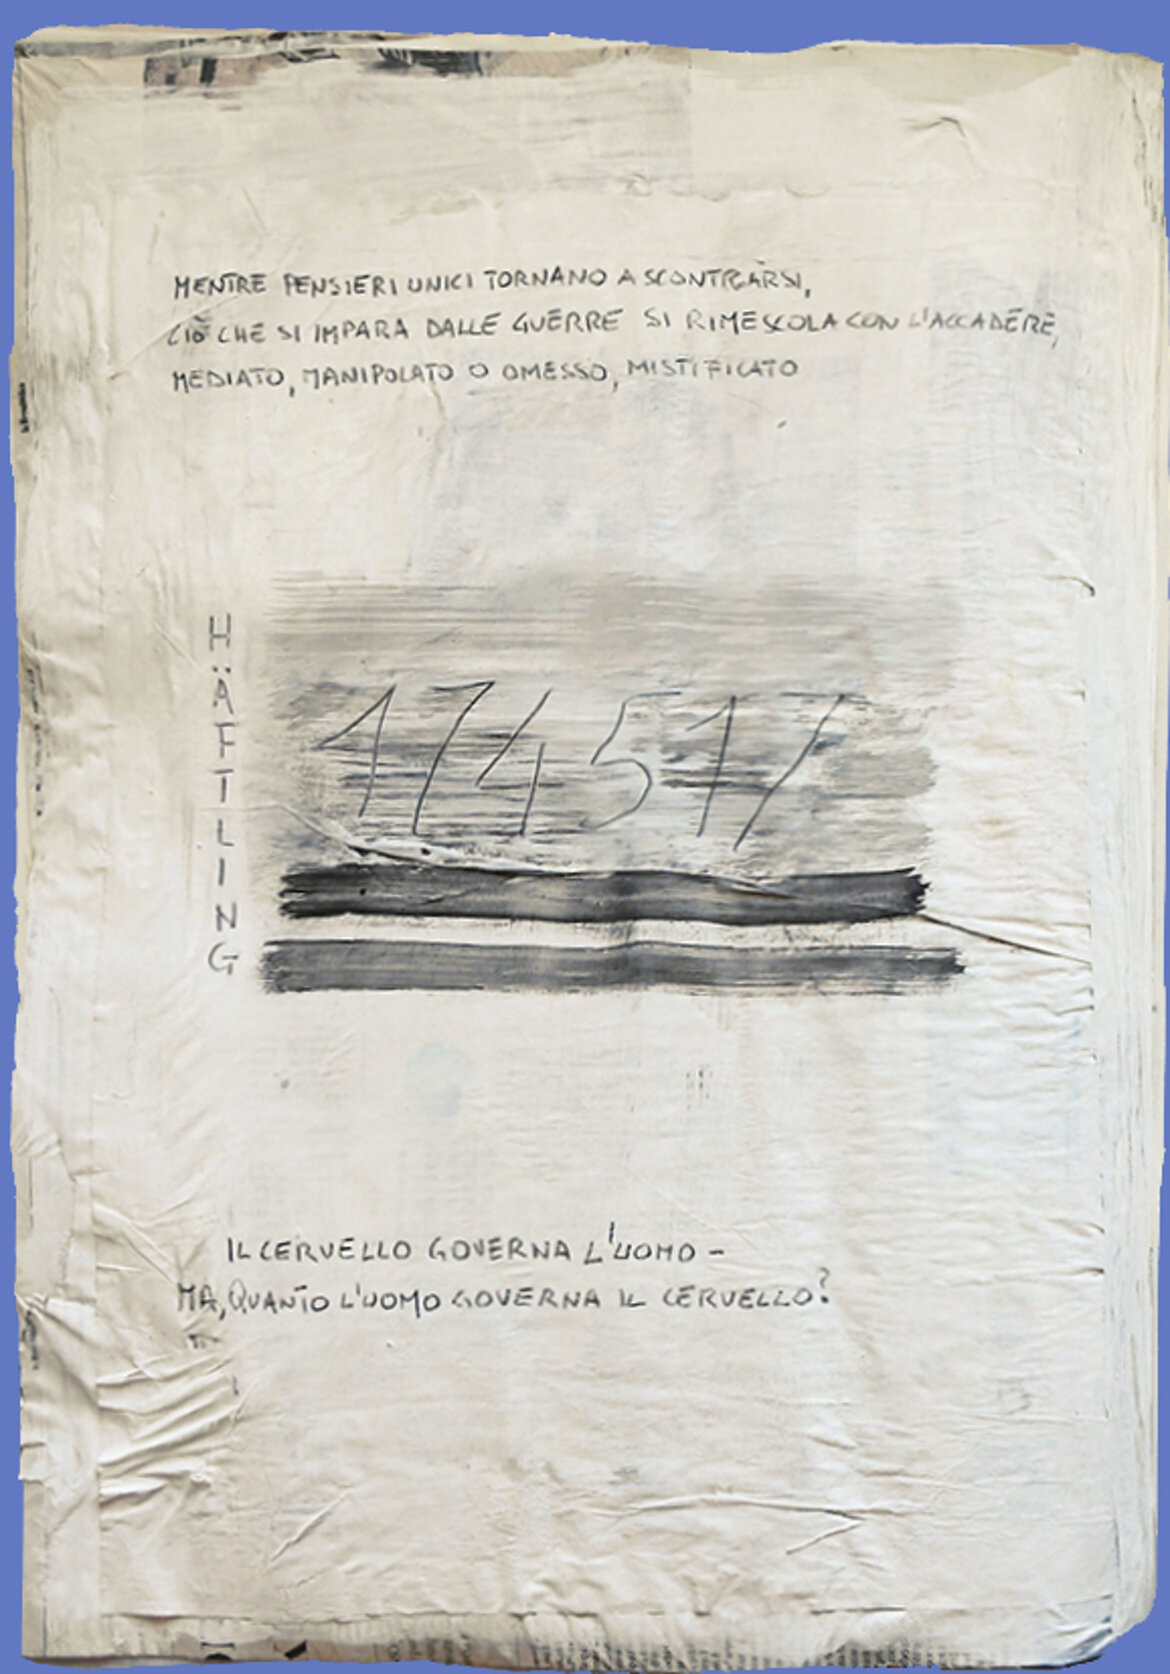 MENTRE PENSIERI UNICI TORNANO A SCONTRARSI,
CIÒ CHE SI IMPARA DALLE GUERRE SI RIMESCOLA CON L'ACCADERE,
MEDIATO, MANIPOLATO O OMESSO, MISTIFICATO
HÄFTLING
174517
IL CERVELLO GOVERNA L'UOMO -
MA, QUANTO L'UOMO GOVERNA IL CERVELLO?